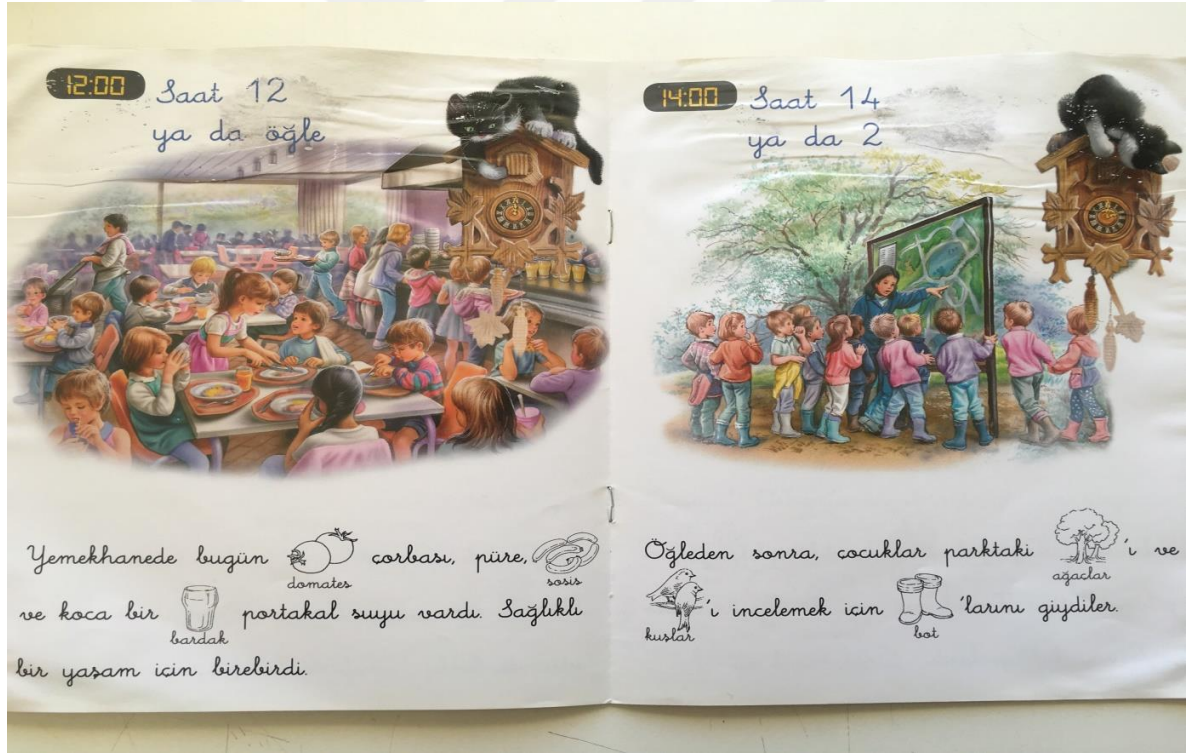 12:00
Saat 12
ya da öğle
Yemekhanede bugün domates çorbası, püre, sosis
ve koca bir bardak portakal suyu vardı. Sağlıklı
bir yaşam için birebirdi.
14:00
Saat 14
ya da 2
Öğleden sonra, çocuklar parktaki ağaçlar 'ı ve
kuşlar 'ı incelemek için bot 'larını giydiler.